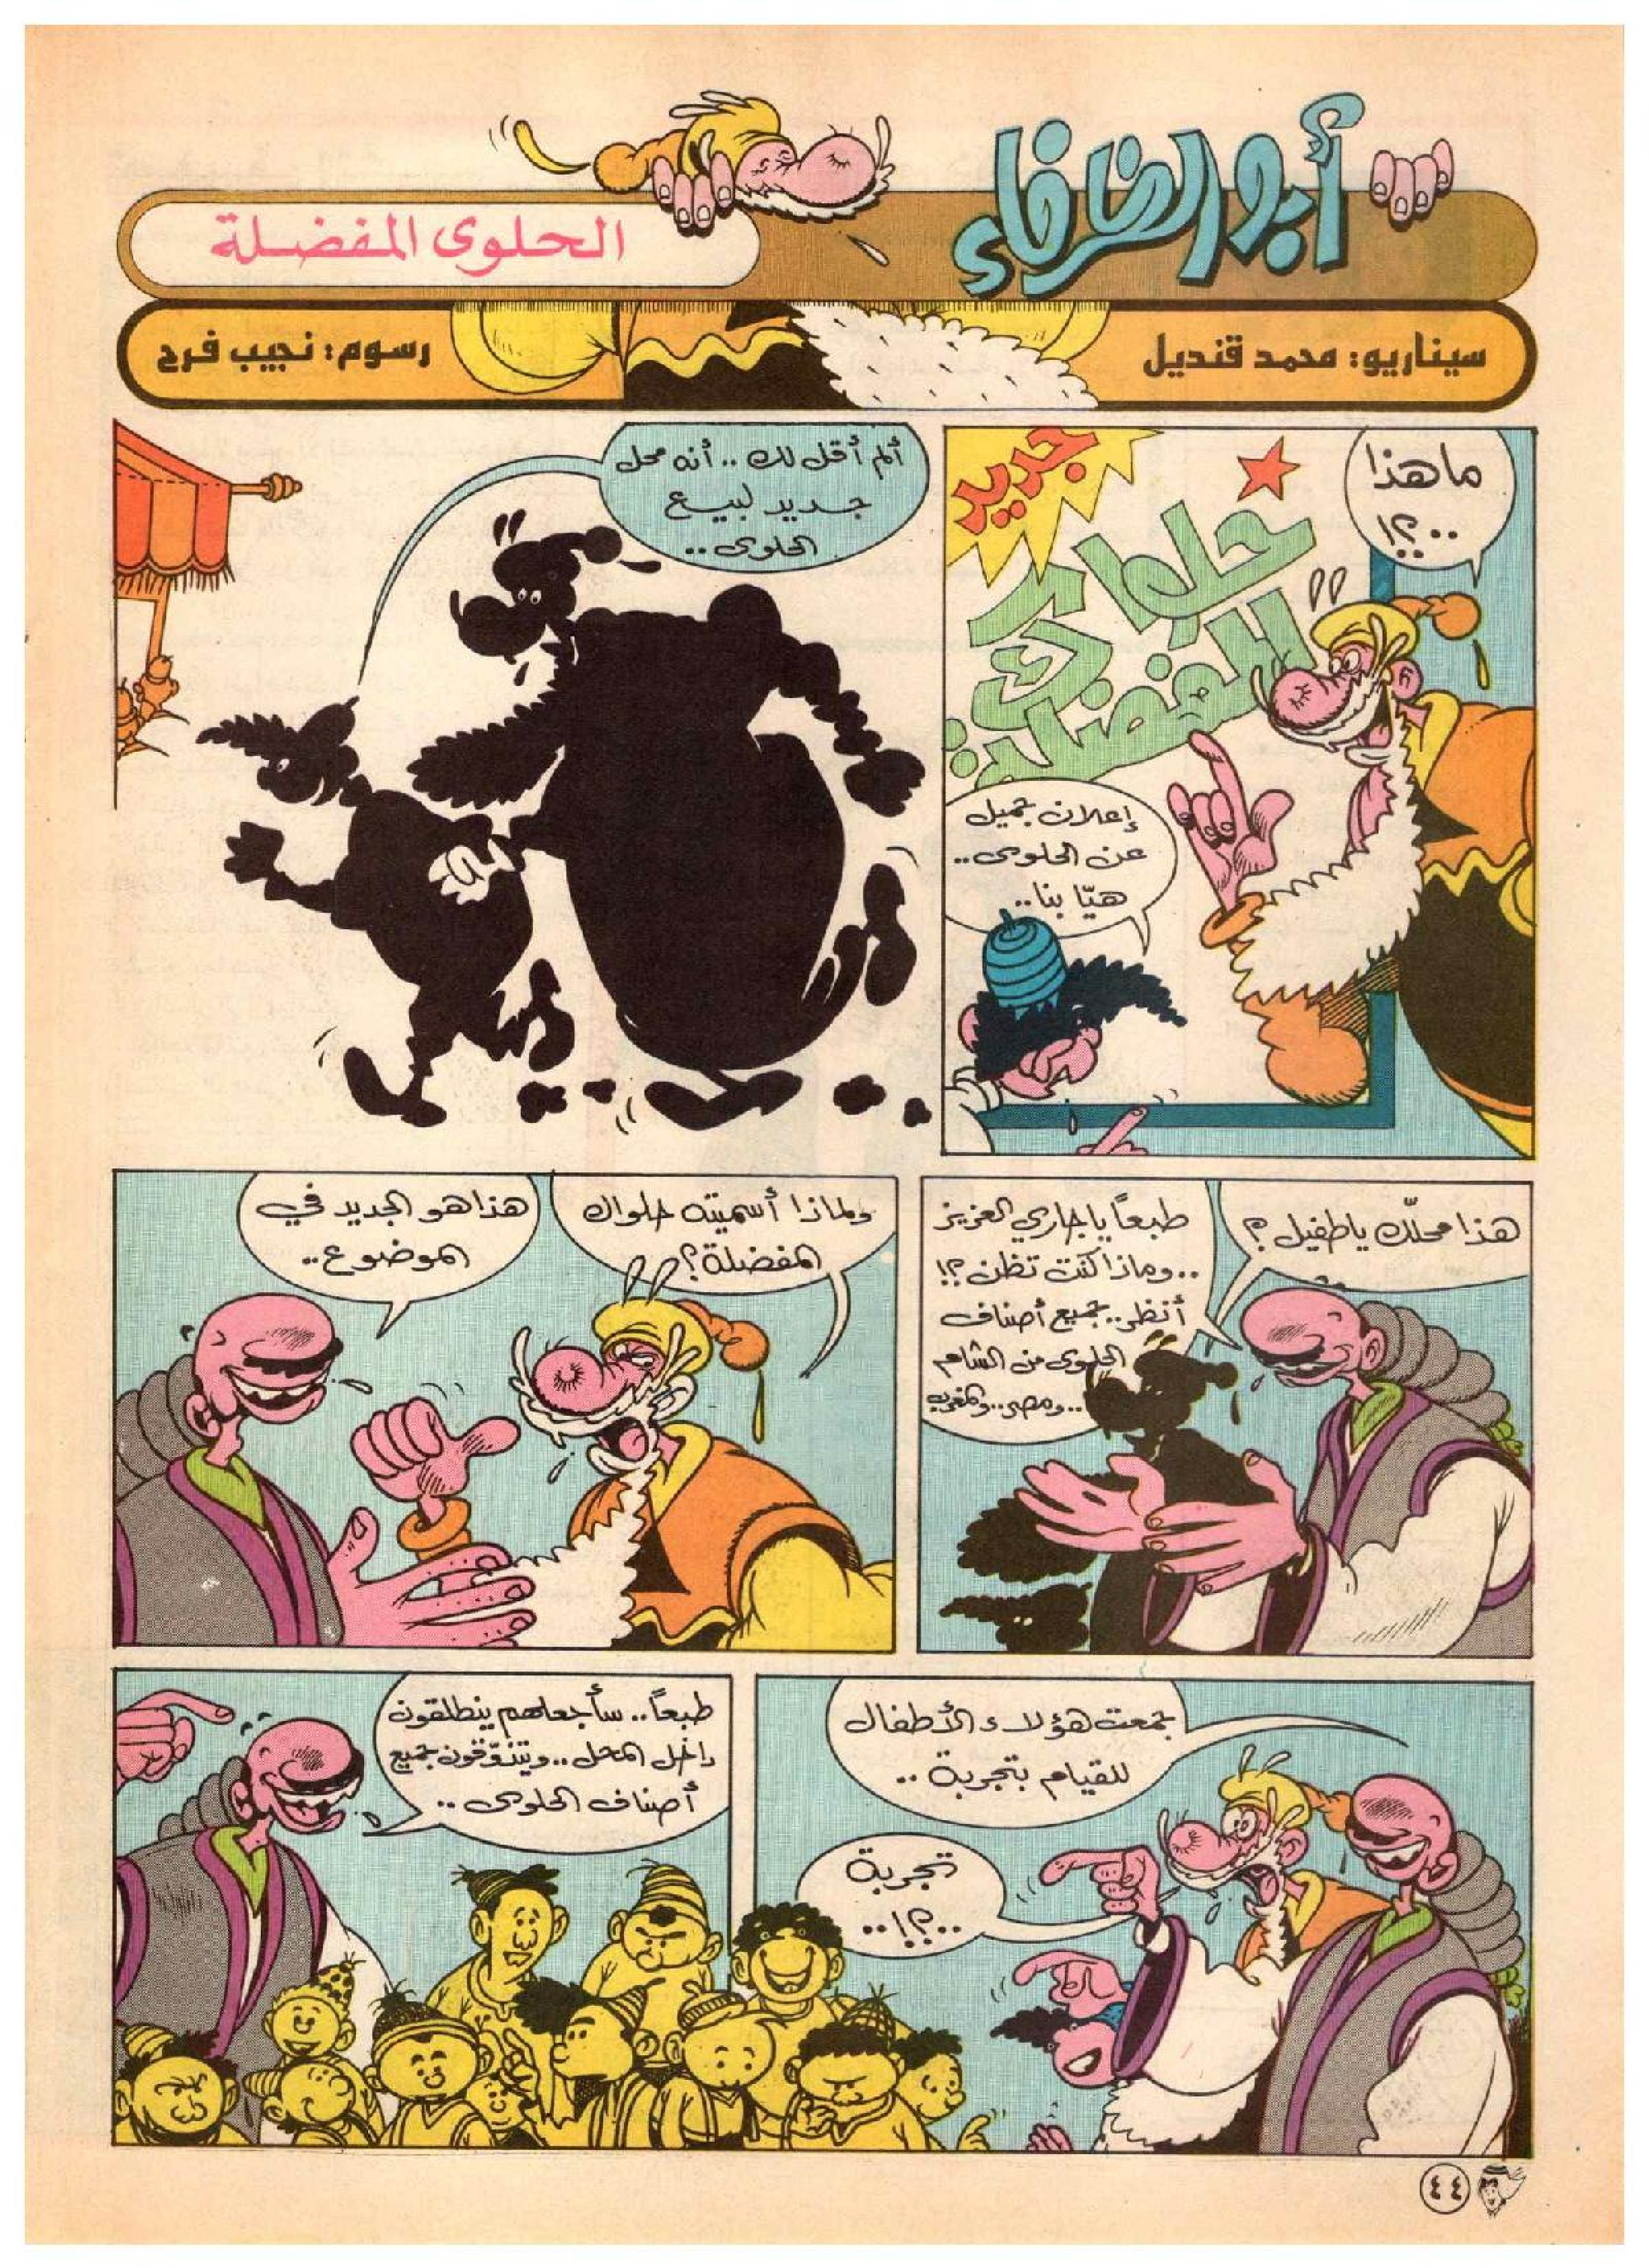 أبو الظرفاء
الحلوى المفضلة
سيناريو: محمد قنديل
رسوم: نجيب فرح
ما هذا
..؟!
جديد
حلواك
المفضلة
إعلان جميل
عن الحلوى..
هيّا بنا..
ألم أقل لك .. أنه محل
جديد لبيع
الحلوى..
هذا محلّك ياطفيل؟
طبعاً يا جاري العزيز
..وماذا كنت تظن؟!
أنظر.. جميع أصناف
الحلوى من الشام
..ومصر..والمغرب
ولماذا أسميته حلواك
المفضلة؟
هذا هو الجديد في
الموضوع..
جمعت هؤلاء الأطفال
للقيام بتجربة ..
تجربة
..؟!..
طبعاً.. سأجعلهم ينطلقون
داخل المحل..ويتذوّقون جميع
أصناف الحلوى ..
٤٤